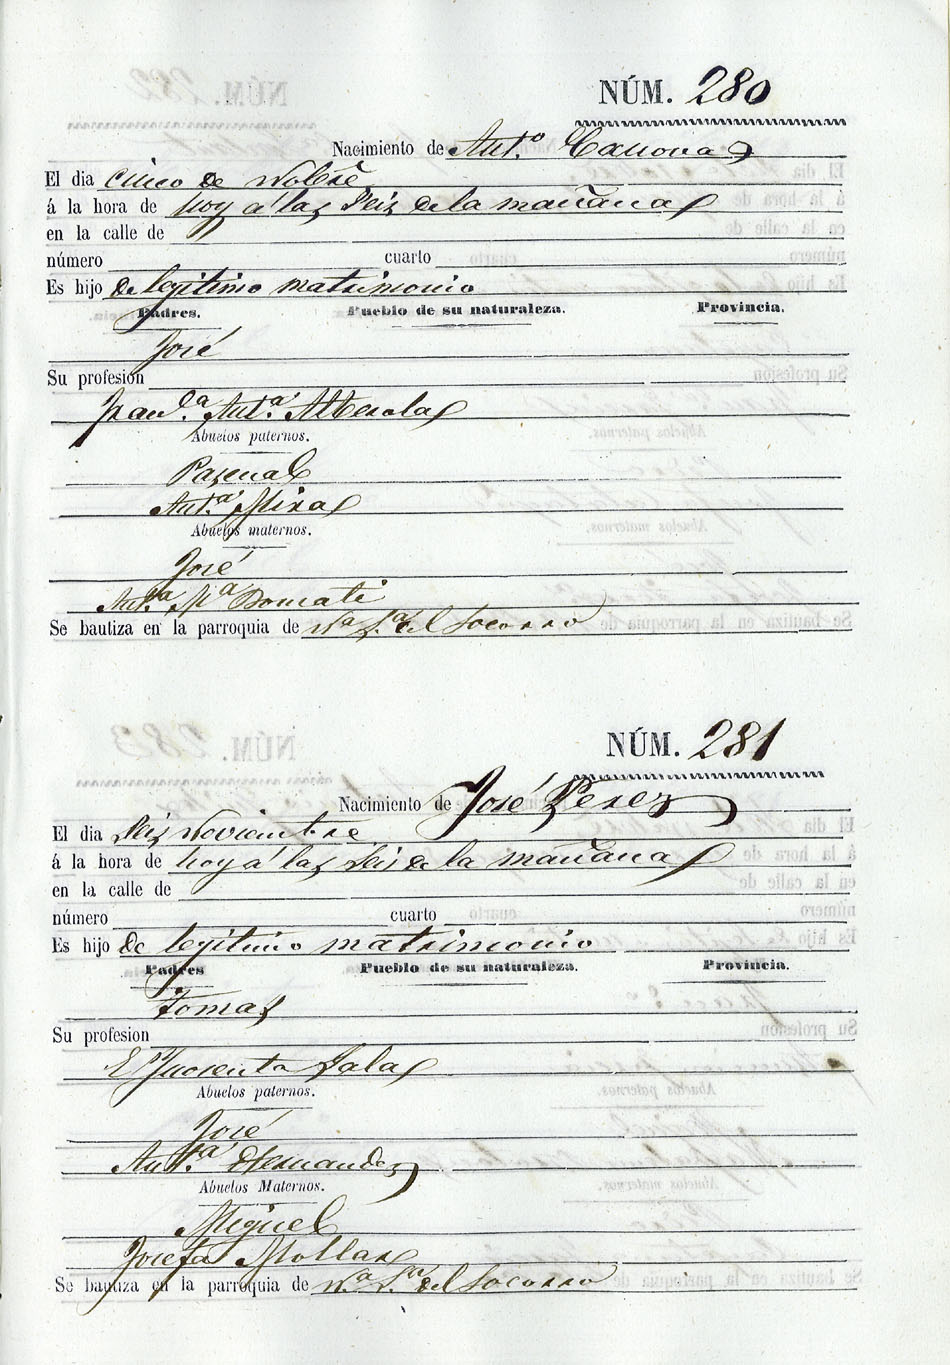 NÚM. 280
Nacimiento de Ant.º Canovas
El dia cinco de Nobre
á la hora de hoy á las seis de la mañana
en la calle de
número cuarto
Es hijo de legitimo matrimonio
Padres. Pueblo de su naturaleza. Provincia.
José
Su profesion
Fran.ca Ant.ª Alberola
Abuelos paternos.
Pascual
Ant.ª Mira
Abuelos maternos.
José
Ant.ª Mª
Se bautiza en la parroquia de Nª Sª del Socorro
NÚM. 281
Nacimiento de José Perez
El dia seis Noviembre
á la hora de hoy á las seis de la mañana
en la calle de
número cuarto
Es hijo de legitimo matrimonio
Padres Pueblo de su naturaleza. Provincia.
Tomas
Su profesion
Sala
Abuelos paternos.
José
Ant.ª Hernandez
Abuelos Maternos.
Miguel
Josefa Mollar
Se bautiza en la parroquia de Nª Sª del Socorro